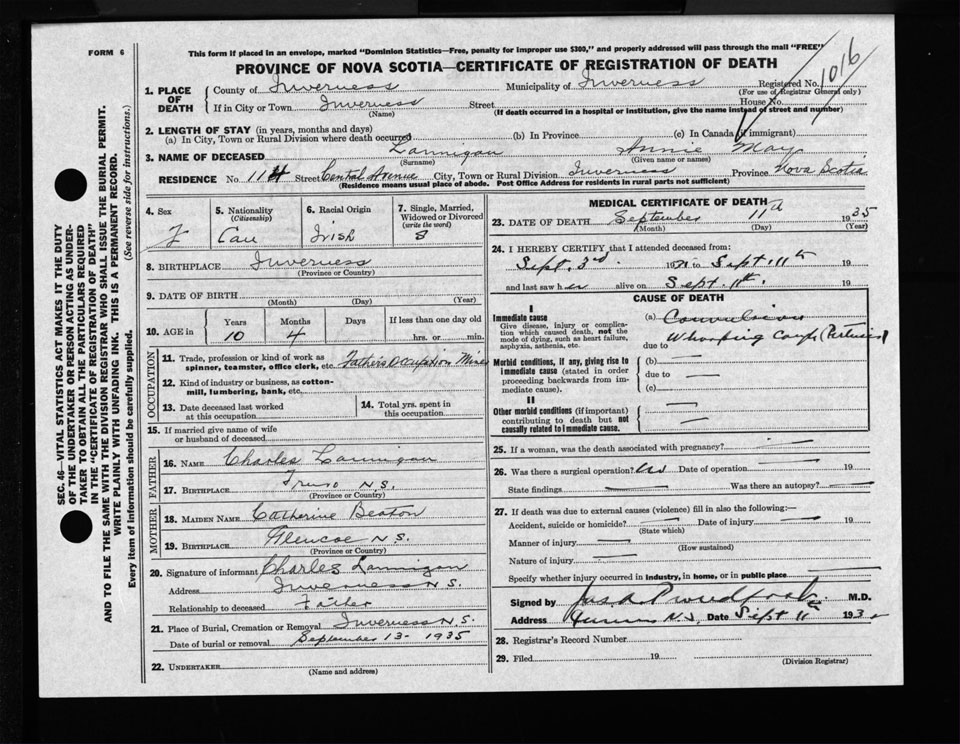 FORM 6
This form if placed in an envelope, marked "Dominion Statistics—Free, penalty for improper use $300," and properly addressed will pass through the mail "FREE"
PROVINCE OF NOVA SCOTIA—CERTIFICATE OF REGISTRATION OF DEATH
1016
1. PLACE OF DEATH
County of Inverness Municipality of Inverness Registered No.
(For use of Registrar General only)
If in City or Town Inverness Street House No.
(Name) (If death occurred in a hospital or institution, give the name instead of street and number)
2. LENGTH OF STAY (in years, months and days)
(a) In City, Town or Rural Division where death occurred (b) In Province (c) In Canada (if immigrant)
3. NAME OF DECEASED Lannigan Annie May
(Surname) (Given name or names)
RESIDENCE No. 114 Street Central Avenue City, Town or Rural Division Inverness Province Nova Scotia
(Residence means usual place of abode. Post Office Address for residents in rural parts not sufficient)
4. Sex
F
5. Nationality
(Citizenship)
Can
6. Racial Origin
Irish
7. Single, Married, Widowed or Divorced
(write the word)
S
8. BIRTHPLACE Inverness
(Province or Country)
9. DATE OF BIRTH
(Month) (Day) (Year)
10. AGE in
Years Months Days If less than one day old
10 4 hrs. or min.
OCCUPATION
11. Trade, profession or kind of work as spinner, teamster, office clerk, etc. Father's Occupation Miner
12. Kind of industry or business, as cotton-mill, lumbering, bank, etc.
13. Date deceased last worked at this occupation
14. Total yrs. spent in this occupation
15. If married give name of wife or husband of deceased
FATHER
16. NAME Charles Lannigan
17. BIRTHPLACE Truro N.S.
(Province or Country)
MOTHER
18. MAIDEN NAME Catherine Beaton
19. BIRTHPLACE Glencoe N S.
(Province or Country)
20. Signature of informant Charles Lannigan
Address Inverness N S.
Relationship to deceased Father
21. Place of Burial, Cremation or Removal Inverness N.S.
Date of burial or removal September 13 - 1935
22. UNDERTAKER
(Name and address)
MEDICAL CERTIFICATE OF DEATH
23. DATE OF DEATH September 11th 1935
(Month) (Day) (Year)
24. I HEREBY CERTIFY that I attended deceased from:
Sept. 3rd. 19 to Sept. 11th 19
and last saw her alive on Sept. 11th. 19
CAUSE OF DEATH
I
Immediate cause
Give disease, injury or complication which caused death, not the mode of dying, such as heart failure, asphyxia, asthenia, etc.
(a) Convulsion
due to Whooping Cough (Pertussis)
Morbid conditions, if any, giving rise to immediate cause (stated in order proceeding backwards from immediate cause).
(b) —
due to —
(c) —
II
Other morbid conditions (if important) contributing to death but not causally related to immediate cause.
25. If a woman, was the death associated with pregnancy? —
26. Was there a surgical operation? Date of operation — 19
State findings — Was there an autopsy? —
27. If death was due to external causes (violence) fill in also the following:—
Accident, suicide or homicide? — Date of injury — 19
(State which)
Manner of injury —
(How sustained)
Nature of injury —
Specify whether injury occurred in industry, in home, or in public place
Signed by M.D.
Address N.S. Date Sept 11 193
28. Registrar's Record Number
29. Filed 19
(Division Registrar)
SEC. 46—VITAL STATISTICS ACT MAKES IT THE DUTY
OF THE UNDERTAKER OR PERSON ACTING AS UNDER-
TAKER TO OBTAIN ALL THE PARTICULARS REQUIRED
IN THE "CERTIFICATE OF REGISTRATION OF DEATH"
AND TO FILE THE SAME WITH THE DIVISION REGISTRAR WHO SHALL ISSUE THE BURIAL PERMIT.
WRITE PLAINLY WITH UNFADING INK. THIS IS A PERMANENT RECORD.
Every item of information should be carefully supplied. (See reverse side for instructions.)